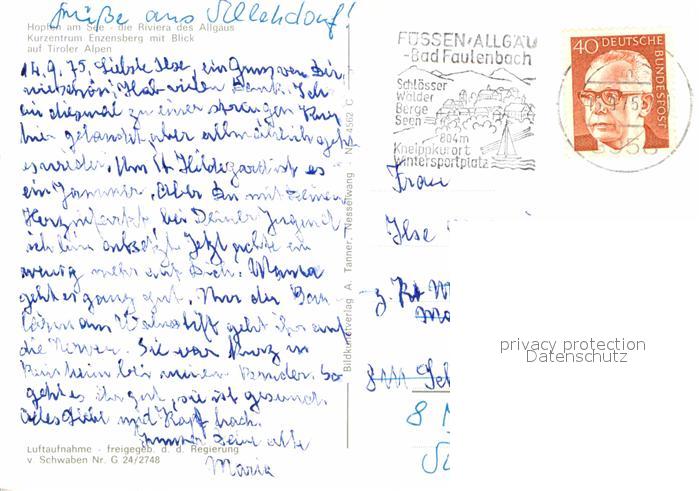 Grüße aus
Hopfen am See - die Riviera des Allgäus
Kurzentrum Enzensberg mit Blick
auf Tiroler Alpen
14.9.75. Liebste Ilse, ein Gruss von Dir,
wie schön! Hab vielen Dank. Ich
bin diesmal zu einer strengen Kur
hier gelandet aber allmählich geht
es wieder. Um St. Hildegardist es
ein Jammer. Aber Du mit Deinem
Herzinfarkt bei Deiner Jugend
ich bin entsetzt. Jetzt achte ein
wenig mehr auf Dich. Mama
geht es ganz gut. Nur der
am geht ihr auf
die Nerven. Sie war kurz in
bei meinem Bruder. So
geht es ihr gut, sie ist gesund.
Alles Liebe und Kopf hoch.
Immer Deine alte
Maria
Luftaufnahme - freigegeb. d. d. Regierung
v Schwaben Nr. G 24/2748
Bildkunstverlag A. Tanner, Nesselwang Nr. 4562 C
FÜSSEN-ALLGÄU
-Bad Faulenbach
Schlösser
Wälder
Berge
Seen
804m
Kneippkurort
Wintersportplatz
40 DEUTSCHE
BUNDESPOST
Frau
Ilse
z. Zt
8
privacy protection
Datenschutz